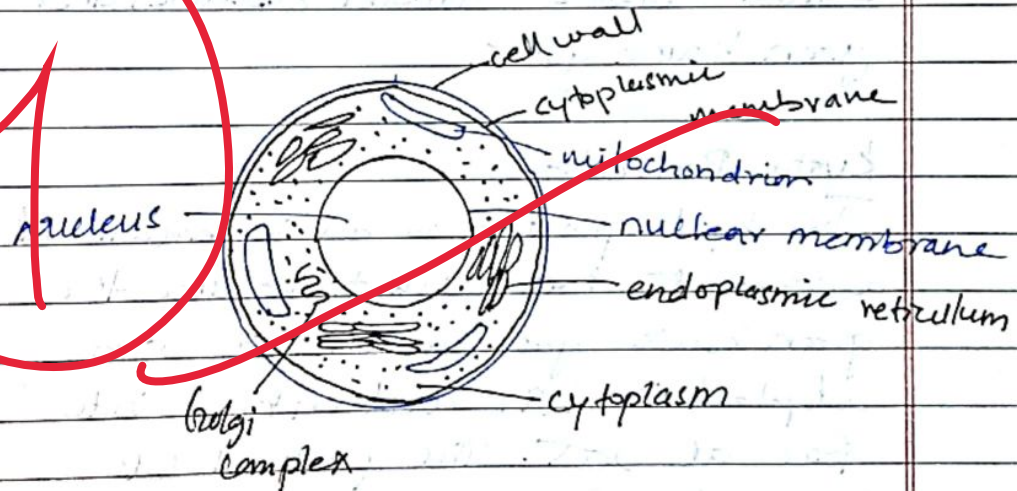 1
cell wall
cytoplasmic
membrane
mitochondrion
nucleus
nuclear membrane
endoplasmic reticullum
cytoplasm
Golgi
complex